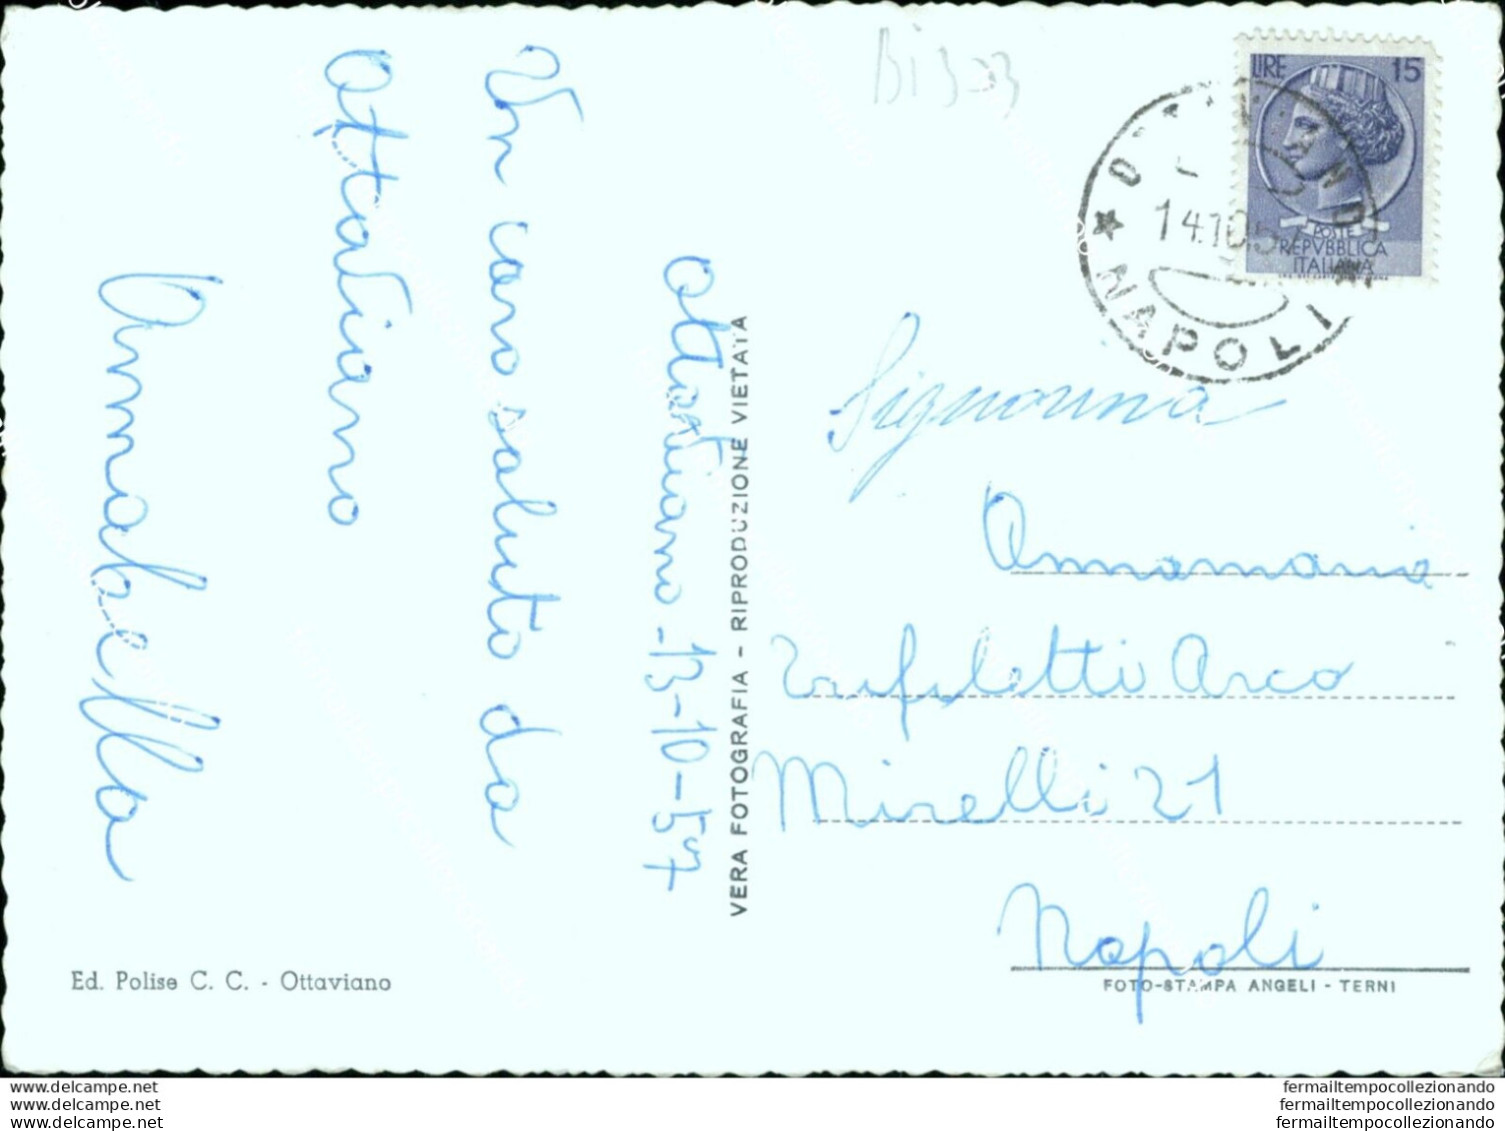 Bi 303
LIRE 15
POSTE
REPVBBLICA
ITALIANA
14.10.57
NAPOLI
Ottaviano - 13-10-57
Un caro saluto da
Ottaviano
Annabella
Ed. Polise C. C. - Ottaviano
VERA FOTOGRAFIA - RIPRODUZIONE VIETATA
Signorina
Annamaria
Trifiletti Arco
Mirelli 21
Napoli
FOTO-STAMPA ANGELI - TERNI
www.delcampe.net
www.delcampe.net
www.delcampe.net
fermailtempocollezionando
fermailtempocollezionando
fermailtempocollezionando